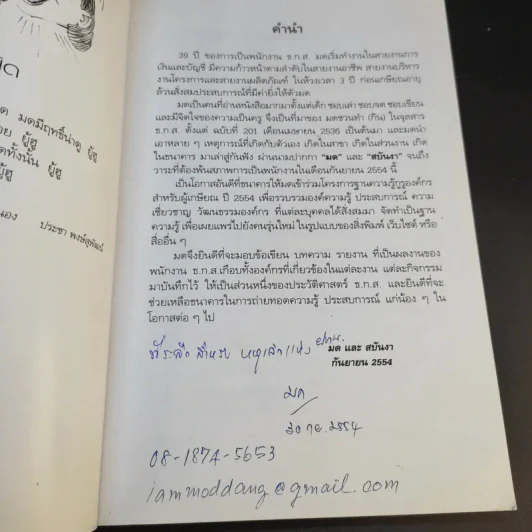 คำนำ
39 ปี ของการเป็นพนักงาน ธ.ก.ส. มดเริ่มทำงานในสายงานการ
เงินและบัญชี มีความก้าวหน้าตามลำดับในสายงานอาชีพ สายงานบริหาร
งานโครงการและสายงานผลิตภัณฑ์ ในห้วงเวลา 3 ปี ก่อนเกษียณอายุ
ล้วนสั่งสมประสบการณ์ที่มีค่ายิ่งให้ตัวมด
มดเป็นคนที่อ่านหนังสือมากมาตั้งแต่เด็ก ชอบเล่า ชอบจด ชอบเขียน
และมีจิตใจของความเป็นครู จึงเป็นที่มาของ มดชวนทำ (กิน) ในจุลสาร
ธ.ก.ส. ตั้งแต่ ฉบับที่ 201 เดือนเมษายน 2536 เป็นต้นมา และมดนำ
เอาหลาย ๆ เหตุการณ์ที่เกิดกับตัวเอง เกิดในสาขา เกิดในส่วนงาน เกิด
ในธนาคาร มาเล่าสู่กันฟัง ผ่านนามปากกา "มด" และ "สบันงา" จนถึง
วาระที่ต้องพ้นสภาพการเป็นพนักงานในเดือนกันยายน 2554 นี้
เป็นโอกาสอันดีที่ธนาคารให้มดเข้าร่วมโครงการฐานความรู้กูรูองค์กร
สำหรับผู้เกษียณ ปี 2554 เพื่อรวบรวมองค์ความรู้ ประสบการณ์ ความ
เชี่ยวชาญ วัฒนธรรมองค์กร ที่แต่ละบุคคลได้สั่งสมมา จัดทำเป็นฐาน
ความรู้ เพื่อเผยแพร่ไปยังคนรุ่นใหม่ ในรูปแบบของสิ่งพิมพ์ เว็บไซต์ หรือ
สื่ออื่น ๆ
มดจึงยินดีที่จะมอบข้อเขียน บทความ รายงาน ที่เป็นผลงานของ
พนักงาน ธ.ก.ส.เกือบทั้งองค์กรที่เกี่ยวข้องในแต่ละงาน แต่ละกิจกรรม
มาบันทึกไว้ ให้เป็นส่วนหนึ่งของประวัติศาสตร์ ธ.ก.ส. และยินดีที่จะ
ช่วยเหลือธนาคารในการถ่ายทอดความรู้ ประสบการณ์ แก่น้อง ๆ ใน
โอกาสต่อ ๆ ไป
มด และ สบันงา
กันยายน 2554
มด
30 กย. 2554
08-1874-5653
iammoddang@gmail.com
มดมีฤทธิ์น่าดู ผู้ฮู
ผู้ฮู
ทั้งนั้น ผู้ฮู
ประชา พงษ์สุพัฒน์